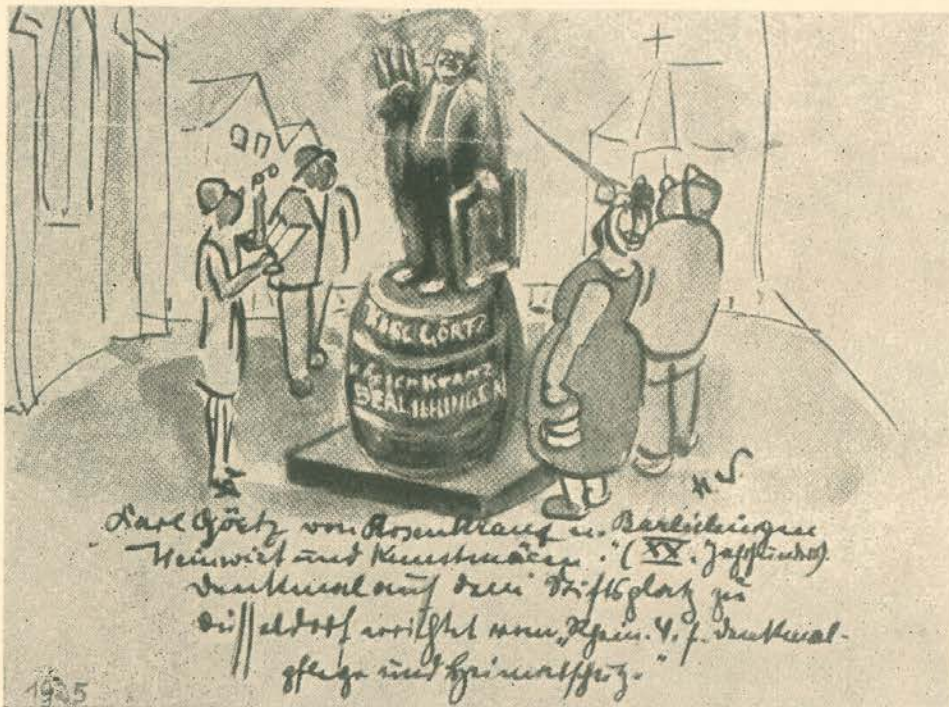 KARL GÖRTZ
v. Rosenkranz
BERLICHINGEN
H. W
Karl Görtz von Rosenkranz u. Berlichingen
Weinwirt und Kunstmäcen." (XX. Jahrhundert).
Denkmal auf dem Stiftsplatz zu
Düsseldorf errichtet vom „Rhein. V. f. Denkmal-
pflege und Heimatschutz."
1925